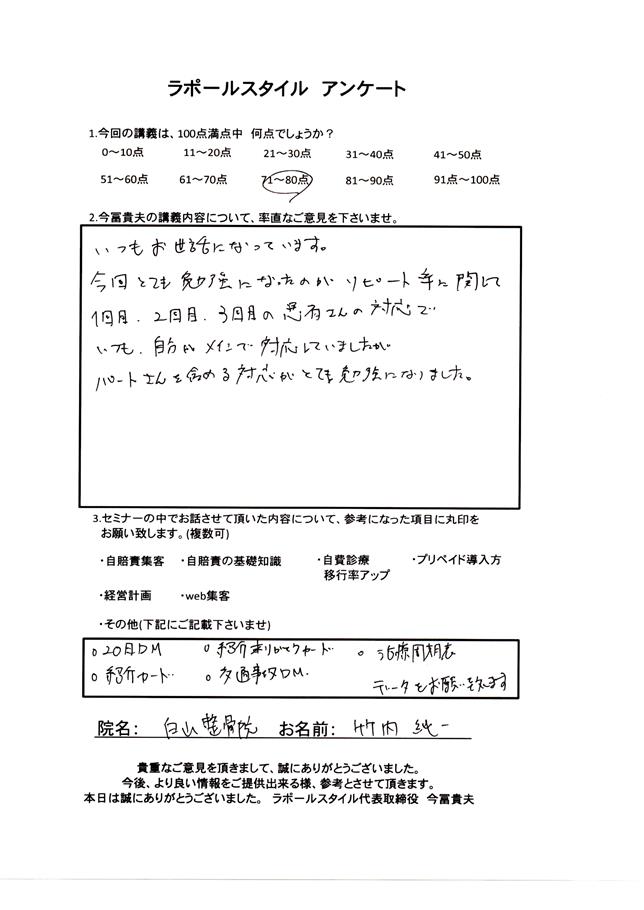 ラポールスタイル アンケート
1.今回の講義は、100点満点中 何点でしょうか？
0～10点 11～20点 21～30点 31～40点 41～50点
51～60点 61～70点 71～80点 81～90点 91点～100点
2.今冨貴夫の講義内容について、率直なご意見を下さいませ。
いつもお世話になっています。
今回とても勉強になったのが リピート率に関して
1回目、2回目、3回目の患者さんの対応で
いつも、自分がメインで対応していましたが
パートさんを含める対応がとても勉強になりました。
3.セミナーの中でお話させて頂いた内容について、参考になった項目に丸印を
お願い致します。(複数可)
・自賠責集客 ・自賠責の基礎知識 ・自費診療 ・プリペイド導入方
移行率アップ
・経営計画 ・web集客
・その他(下記にご記載下さいませ)
○20日DM ○紹介ありがとうカード ○治療周期表
○紹介カード ○交通事故DM
データをお願い致します
院名： 白山整骨院 お名前： 竹内 純一
貴重なご意見を頂きまして、誠にありがとうございました。
今後、より良い情報をご提供出来る様、参考とさせて頂きます。
本日は誠にありがとうございました。 ラポールスタイル代表取締役 今冨貴夫